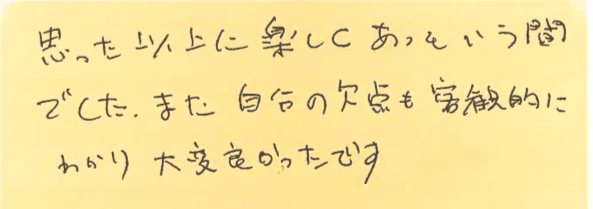 思った以上に楽しくあっという間
でした。また自分の欠点も客観的に
わかり大変良かったです